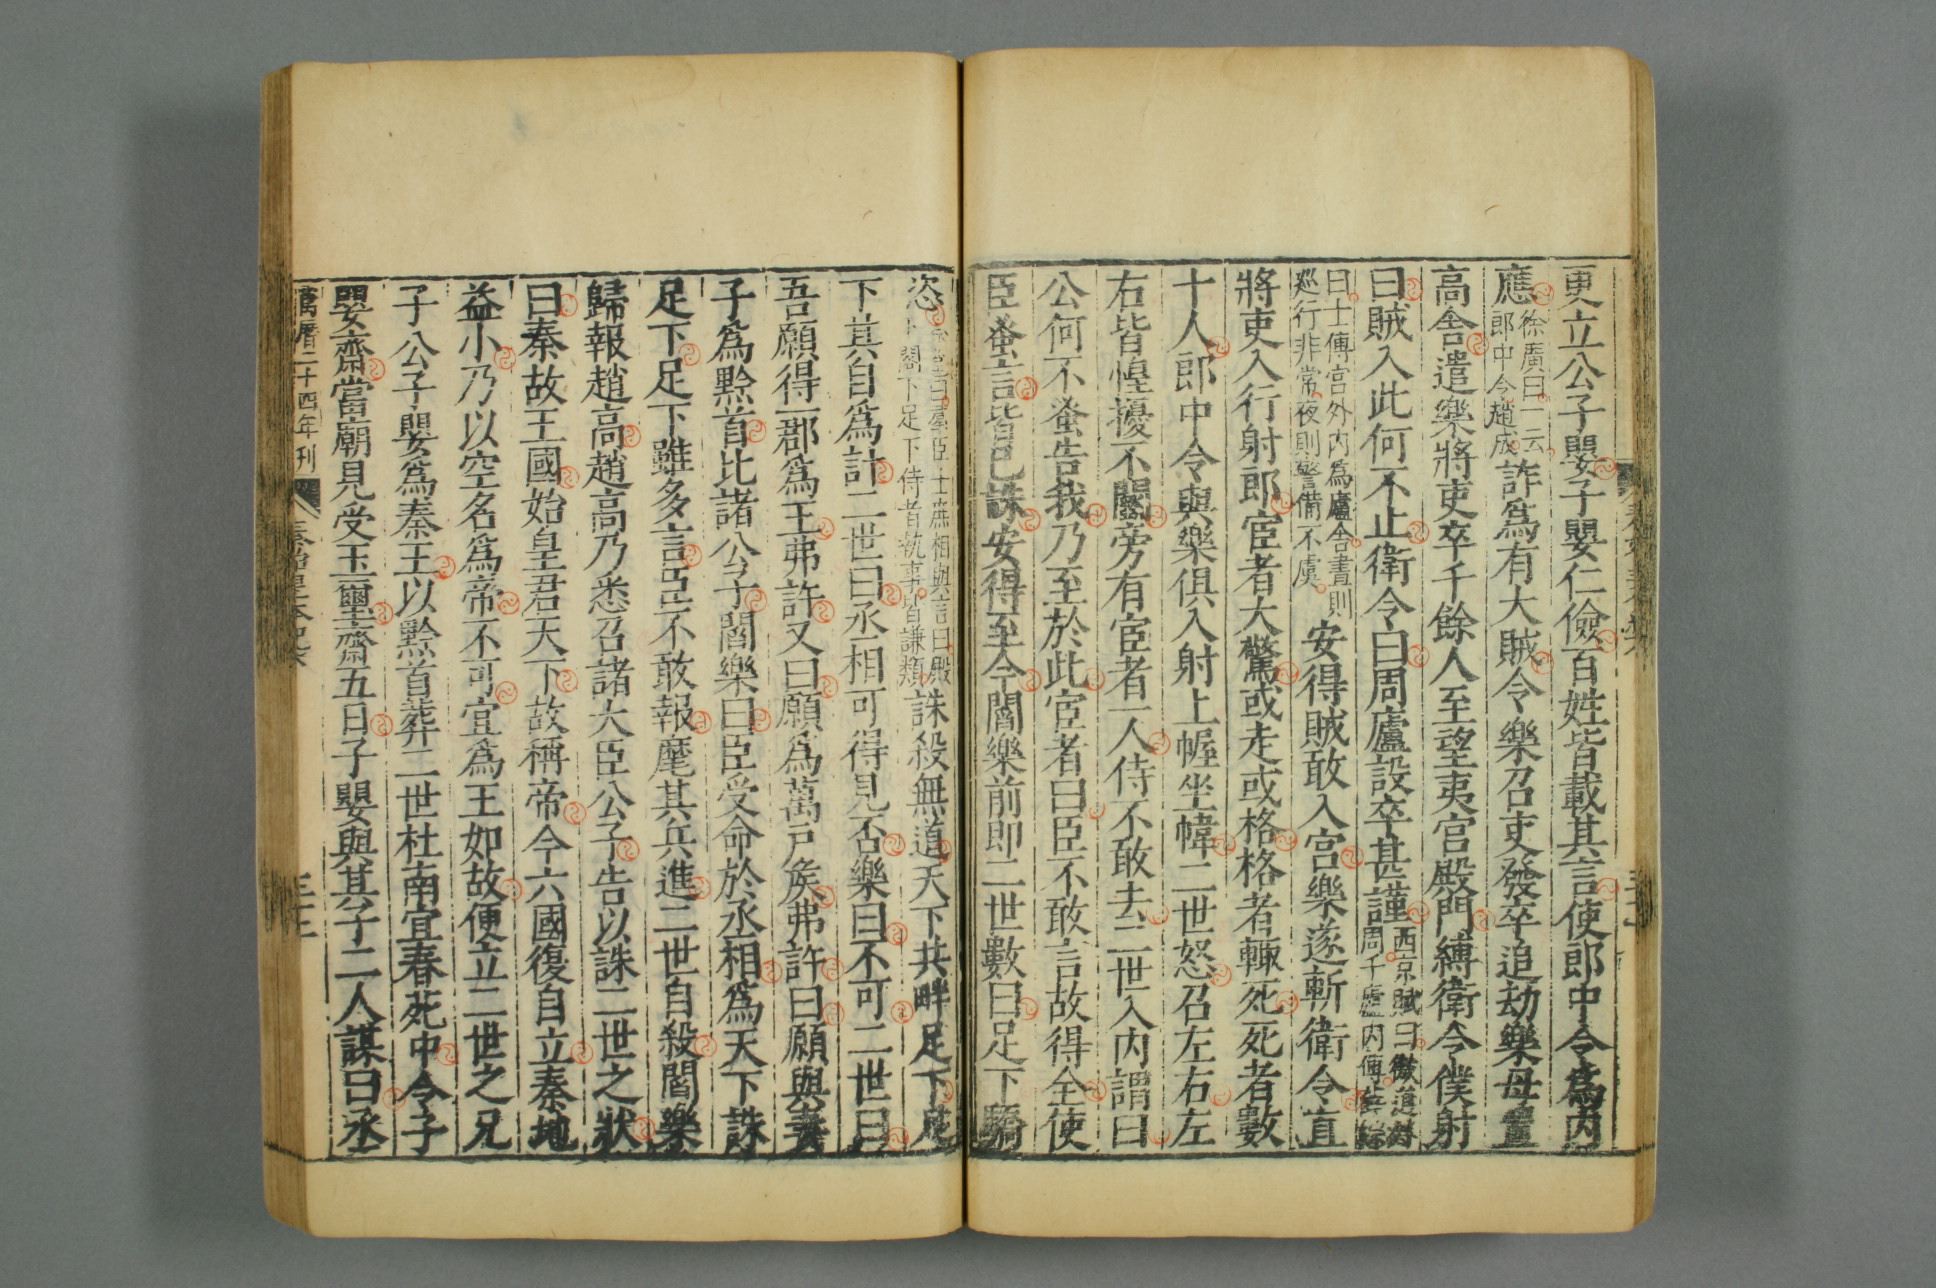 更立公子嬰子嬰仁儉百姓皆載其言使郎中令爲内
應
徐廣曰一云
郎中令趙成
詐爲有大賊令樂召吏發卒追劫樂母置
高舍遣樂將吏卒千餘人至望夷宫殿門縛衛令僕射
曰賊入此何不止衛令曰周廬設卒甚謹
西京賦曰徼道
周千廬内傅
曰士傅宫外内爲廬舍晝則
巡行非常夜則警備不虞
安得賊敢入宫樂遂斬衛令直
將吏入行射郎宦者大驚或走或格格者輒死死者數
十人郎中令與樂俱入射上幄坐幃二世怒召左右左
右皆惶擾不鬭旁有宦者一人侍不敢去二世入内謂曰
公何不蚤告我乃至於此宦者曰臣不敢言故得全使
臣蚤言皆已誅安得至今閻樂前即二世數曰足下驕
恣
曰羣臣士庶相與言曰殿
下閣下足下侍者執事皆謙類
誅殺無道天下共畔足下足
下其自爲計二世曰丞相可得見否樂曰不可二世曰
吾願得一郡爲王弗許又曰願爲萬戶矦弗許曰願與妻
子爲黔首比諸公子閻樂曰臣受命於丞相爲天下誅
足下足下雖多言臣不敢報麾其兵進二世自殺閻樂
歸報趙高趙高乃悉召諸大臣公子告以誅二世之狀
曰秦故王國始皇君天下故稱帝今六國復自立秦地
益小乃以空名爲帝不可宜爲王如故便立二世之兄
子公子嬰爲秦王以黔首葬二世杜南宜春苑中令子
嬰齋當廟見受玉璽齋五日子嬰與其子二人謀曰丞
萬曆二十四年刊
秦始皇本紀六
三十三